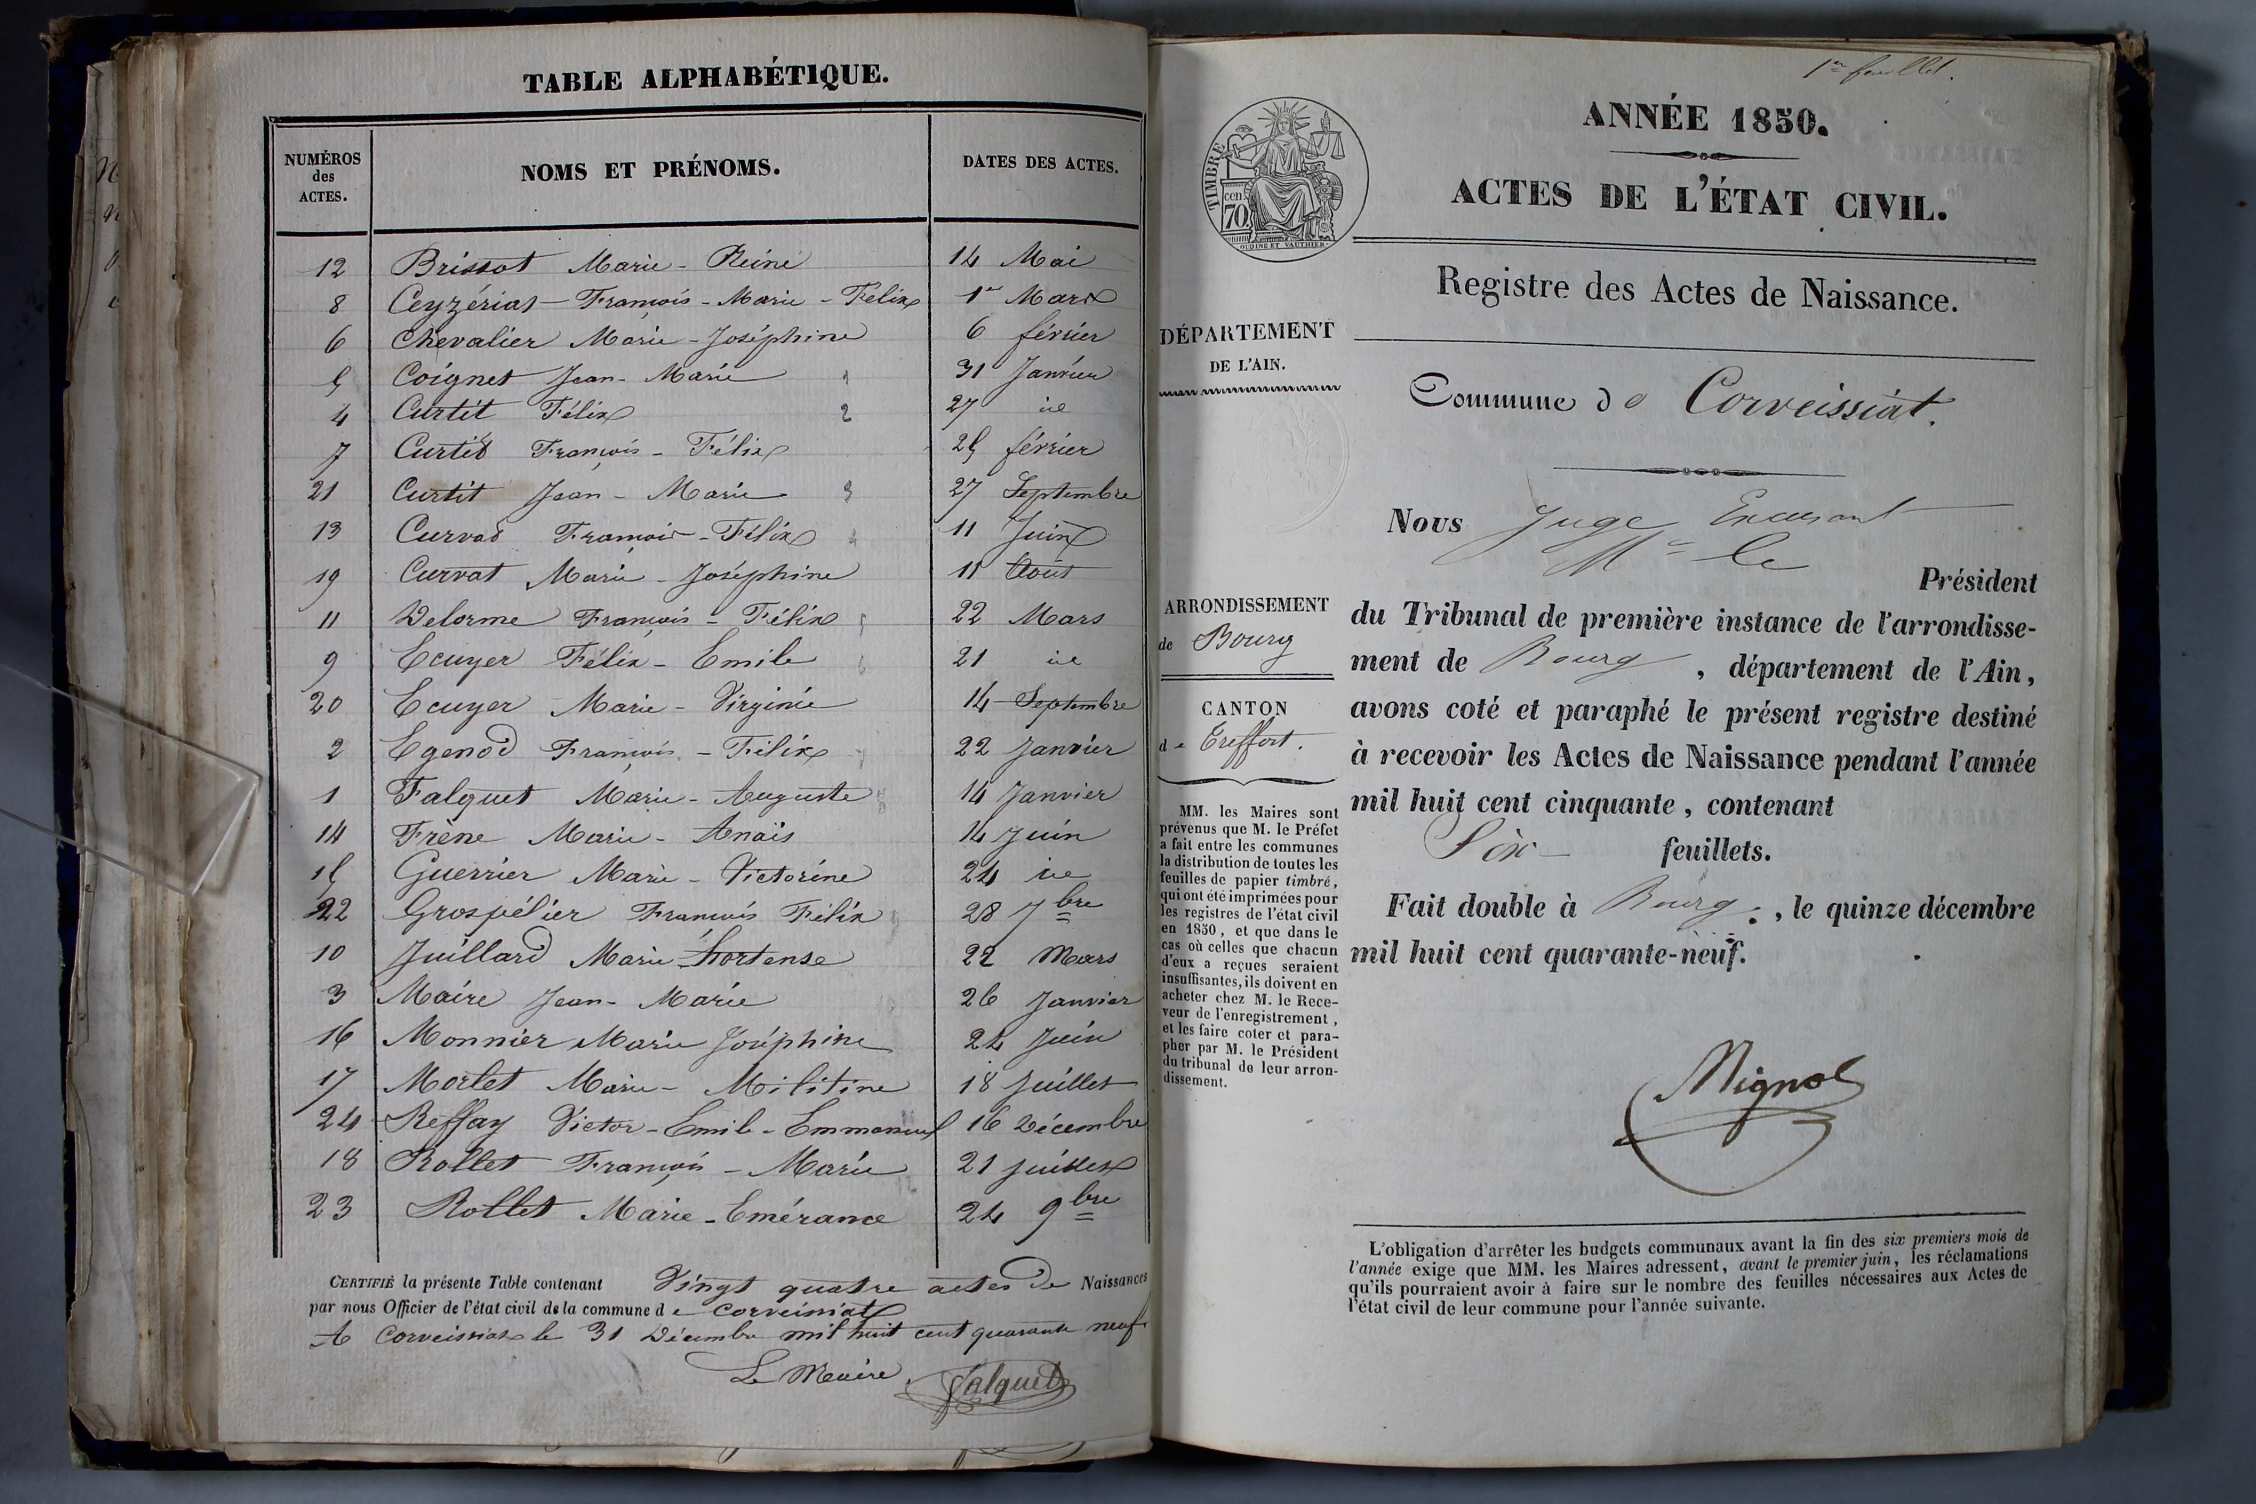 TABLE ALPHABÉTIQUE.
NUMÉROS des ACTES.
NOMS ET PRÉNOMS.
DATES DES ACTES.
12 Brissot Marie - Reine 14 Mai
8 Ceyzériat - François - Marie - Félix 1er Mars
6 Chevalier Marie - Joséphine 6 février
5 Coignet Jean - Marie 1 31 Janvier
4 Curtit Félix 2 27 id
7 Curtit François - Félix 25 février
21 Curtit Jean - Marie 3 27 Septembre
13 Curvat François - Félix 4 11 Juin
19 Curvat Marie - Joséphine 11 Août
11 Delorme François - Félix 5 22 Mars
9 Ecuyer Félix - Emile 6 21 id
20 Ecuyer Marie - Virginie 14 Septembre
2 Egenod François - Félix 7 22 Janvier
1 Falquet Marie - Auguste 8 14 Janvier
14 Frène Marie - Anaïs 14 Juin
15 Guerrier Marie - Victorine 24 id
22 Grospélier François Félix 9 28 7bre
10 Juillard Marie - hortense 22 Mars
3 Maire Jean - Marie 26 Janvier
16 Monnier Marie Joséphine 24 Juin
17 Morlet Marie - Militine 18 Juillet
24 Reffay Victor - Emile - Emmanuel 16 Décembre
18 Rollet François - Marie 21 juillet
23 Rollet Marie - Emérance 24 9bre
CERTIFIÉ la présente Table contenant Vingt quatre actes de Naissances
par nous Officier de l'état civil de la commune de Corveissiat
A Corveissiat le 31 Décembre mil huit cent quarante neuf
Le Maire
Falquet
1er feuillet.
ANNÉE 1850.
ACTES DE L'ÉTAT CIVIL.
TIMBRE
cen. 70
OUDINE ET VAUTHIER
Registre des Actes de Naissance.
DÉPARTEMENT
DE L'AIN.
Commune de Corveissiat.
Nous Juge
Mr le
Président
ARRONDISSEMENT
de Bourg
CANTON
de Treffort.
du Tribunal de première instance de l'arrondisse-
ment de Bourg, département de l'Ain,
avons coté et paraphé le présent registre destiné
à recevoir les Actes de Naissance pendant l'année
mil huit cent cinquante, contenant
Six feuillets.
Fait double à Bourg, le quinze décembre
mil huit cent quarante-neuf.
MM. les Maires sont
prévenus que M. le Préfet
a fait entre les communes
la distribution de toutes les
feuilles de papier timbré,
qui ont été imprimées pour
les registres de l'état civil
en 1850, et que dans le
cas où celles que chacun
d'eux a reçues seraient
insuffisantes, ils doivent en
acheter chez M. le Rece-
veur de l'enregistrement,
et les faire coter et para-
pher par M. le Président
du tribunal de leur arron-
dissement.
Mignot
L'obligation d'arrêter les budgets communaux avant la fin des six premiers mois de
l'année exige que MM. les Maires adressent, avant le premier juin, les réclamations
qu'ils pourraient avoir à faire sur le nombre des feuilles nécessaires aux Actes de
l'état civil de leur commune pour l'année suivante.